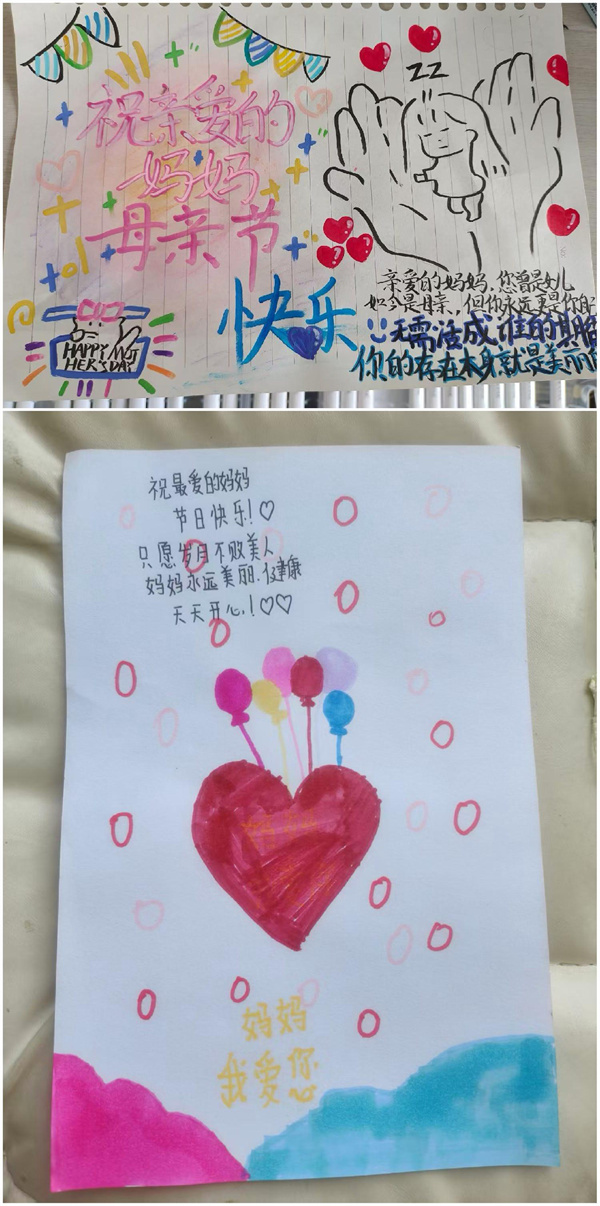 祝亲爱的
妈妈
母亲节
快乐
ZZ
HAPPY MOT
HER'S DAY
亲爱的妈妈，您曾是女儿
如今是母亲，但你永远更是你自
无需活成谁的期
你的存在本身就是美丽
祝最爱的妈妈
节日快乐！♡
只愿岁月不败美人
妈妈永远美丽.健康
天天开心！♡♡
妈妈
我爱您